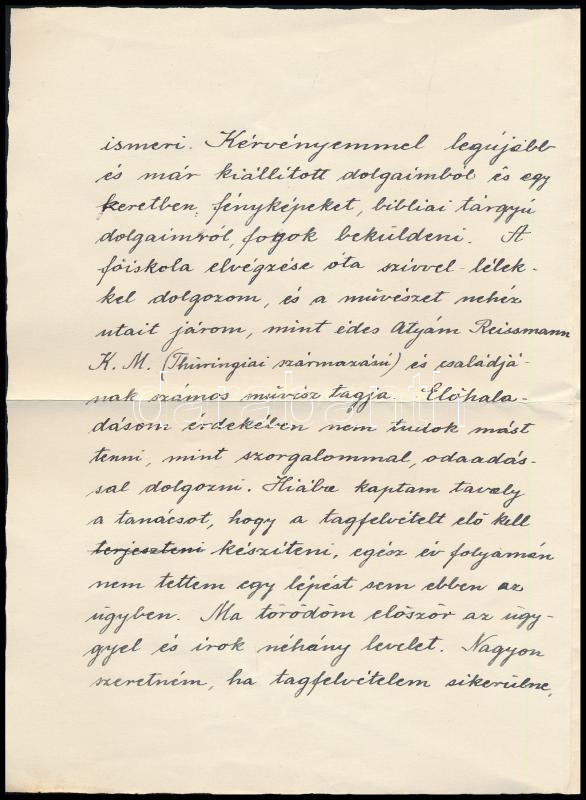 ismeri. Kérvényemmel legújabb
és már kiállított dolgaimból és egy
keretben, fényképeket, bibliai tárgyú
dolgaimról, fogok beküldeni. A
főiskola elvégzése óta szívvel-lélek-
kel dolgozom, és a művészet nehéz
utait járom, mint édes Atyám Reissmann
K. M. (Thüringiai származású) és családjá-
nak számos művész tagja. Előhala-
dásom érdekében nem tudok mást
tenni, mint szorgalommal, odaadás-
sal dolgozni. Hiába kaptam tavaly
a tanácsot, hogy a tagfelvételt elő kell
terjeszteni készíteni, egész év folyamán
nem tettem egy lépést sem ebben az
ügyben. Ma törődöm először az ügy-
gyel és írok néhány levelet. Nagyon
szeretném, ha tagfelvételem sikerülne,
darabanth